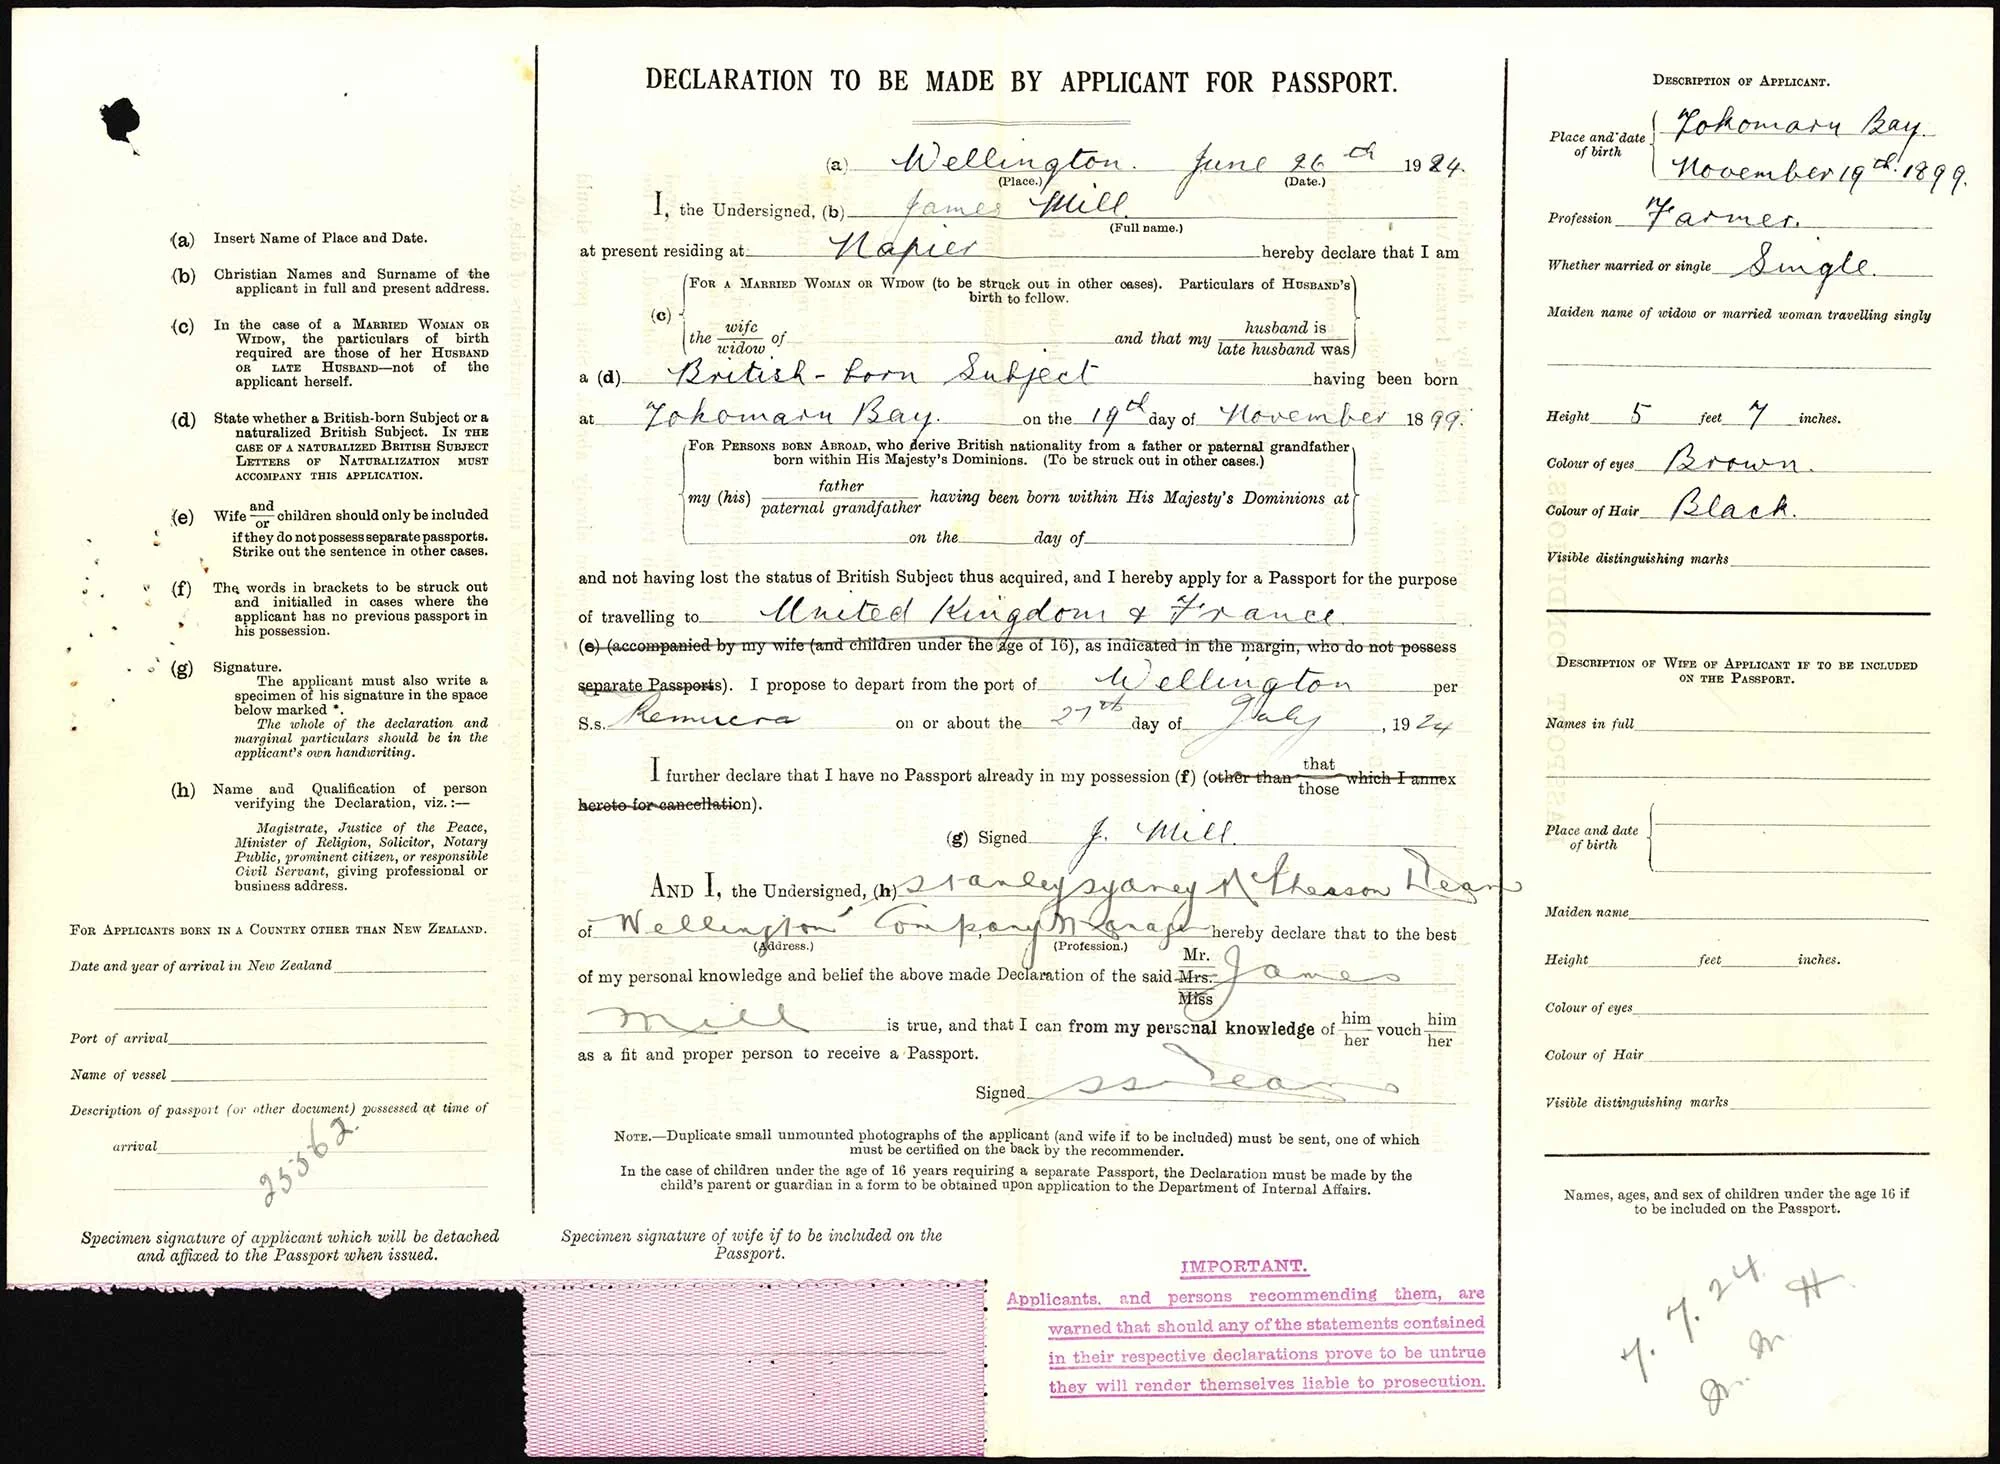 (a) Insert Name of Place and Date.
(b) Christian Names and Surname of the
applicant in full and present address.
(c) In the case of a Married Woman or
Widow, the particulars of birth
required are those of her Husband
or late Husband—not of the
applicant herself.
(d) State whether a British-born Subject or a
naturalized British Subject. In the
case of a naturalized British Subject
Letters of Naturalization must
accompany this application.
(e) Wife and/or children should only be included
if they do not possess separate passports.
Strike out the sentence in other cases.
(f) The words in brackets to be struck out
and initialled in cases where the
applicant has no previous passport in
his possession.
(g) Signature.
The applicant must also write a
specimen of his signature in the space
below marked *.
The whole of the declaration and
marginal particulars should be in the
applicant's own handwriting.
(h) Name and Qualification of person
verifying the Declaration, viz.:—
Magistrate, Justice of the Peace,
Minister of Religion, Solicitor, Notary
Public, prominent citizen, or responsible
Civil Servant, giving professional or
business address.
For Applicants born in a Country other than New Zealand.
Date and year of arrival in New Zealand
Port of arrival
Name of vessel
Description of passport (or other document) possessed at time of
arrival
25562.
Specimen signature of applicant which will be detached
and affixed to the Passport when issued.
DECLARATION TO BE MADE BY APPLICANT FOR PASSPORT.
(a) Wellington. June 26th 1924.
(Place.) (Date.)
I, the Undersigned, (b) James Mill.
(Full name.)
at present residing at Napier hereby declare that I am
(c) For a Married Woman or Widow (to be struck out in other cases). Particulars of Husband's
birth to follow.
the wife/widow of and that my husband is/late husband was
a (d) British-born Subject having been born
at Tokomaru Bay. on the 19th day of November 1899.
For Persons born Abroad, who derive British nationality from a father or paternal grandfather
born within His Majesty's Dominions. (To be struck out in other cases.)
my (his) father/paternal grandfather having been born within His Majesty's Dominions at
on the day of
and not having lost the status of British Subject thus acquired, and I hereby apply for a Passport for the purpose
of travelling to United Kingdom & France.
(e) (accompanied by my wife (and children under the age of 16), as indicated in the margin, who do not possess
separate Passports). I propose to depart from the port of Wellington per
S.s. Remuera on or about the 27th day of July, 1924
I further declare that I have no Passport already in my possession (f) (other than that/those which I annex
hereto for cancellation).
(g) Signed J. Mill.
And I, the Undersigned, (h) Stanley Sydney McPhearson Dean
of Wellington Company Manager hereby declare that to the best
(Address.) (Profession.)
of my personal knowledge and belief the above made Declaration of the said Mr./Mrs./Miss James
Mill is true, and that I can from my personal knowledge of him/her vouch him/her
as a fit and proper person to receive a Passport.
Signed SS Dean
Note.—Duplicate small unmounted photographs of the applicant (and wife if to be included) must be sent, one of which
must be certified on the back by the recommender.
In the case of children under the age of 16 years requiring a separate Passport, the Declaration must be made by the
child's parent or guardian in a form to be obtained upon application to the Department of Internal Affairs.
Specimen signature of wife if to be included on the
Passport.
IMPORTANT.
Applicants, and persons recommending them, are
warned that should any of the statements contained
in their respective declarations prove to be untrue
they will render themselves liable to prosecution.
Description of Applicant.
Place and date of birth Tokomaru Bay.
November 19th. 1899.
Profession Farmer.
Whether married or single Single.
Maiden name of widow or married woman travelling singly
Height 5 feet 7 inches.
Colour of eyes Brown.
Colour of Hair Black.
Visible distinguishing marks
Description of Wife of Applicant if to be included
on the Passport.
Names in full
Place and date
of birth
Maiden name
Height feet inches.
Colour of eyes
Colour of Hair
Visible distinguishing marks
Names, ages, and sex of children under the age 16 if
to be included on the Passport.
7.7.24.